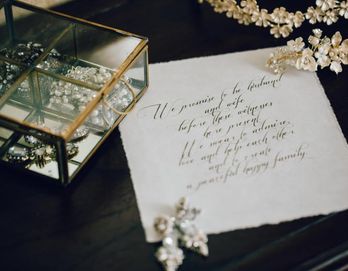 We promise to be husband
and wife
before these witnesses
here present.
We swear to admire,
love and help each other
and to create
a peaceful happy family